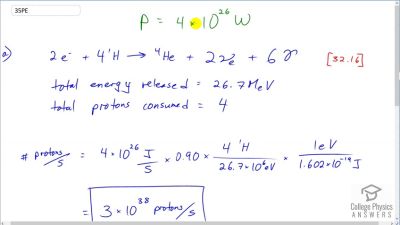 35PE
P = 4×10²⁶ W
a) 2e⁻ + 4¹H → ⁴He + 2νₑ + 6γ [32.16]
total energy released = 26.7 MeV
total protons consumed = 4
# protons/s = 4×10²⁶ J/s × 0.90 × 4 ¹H/26.7×10⁶ eV × 1eV/1.602×10⁻¹⁹ J
= 3×10³⁸ protons/s
College Physics
ANSWERS